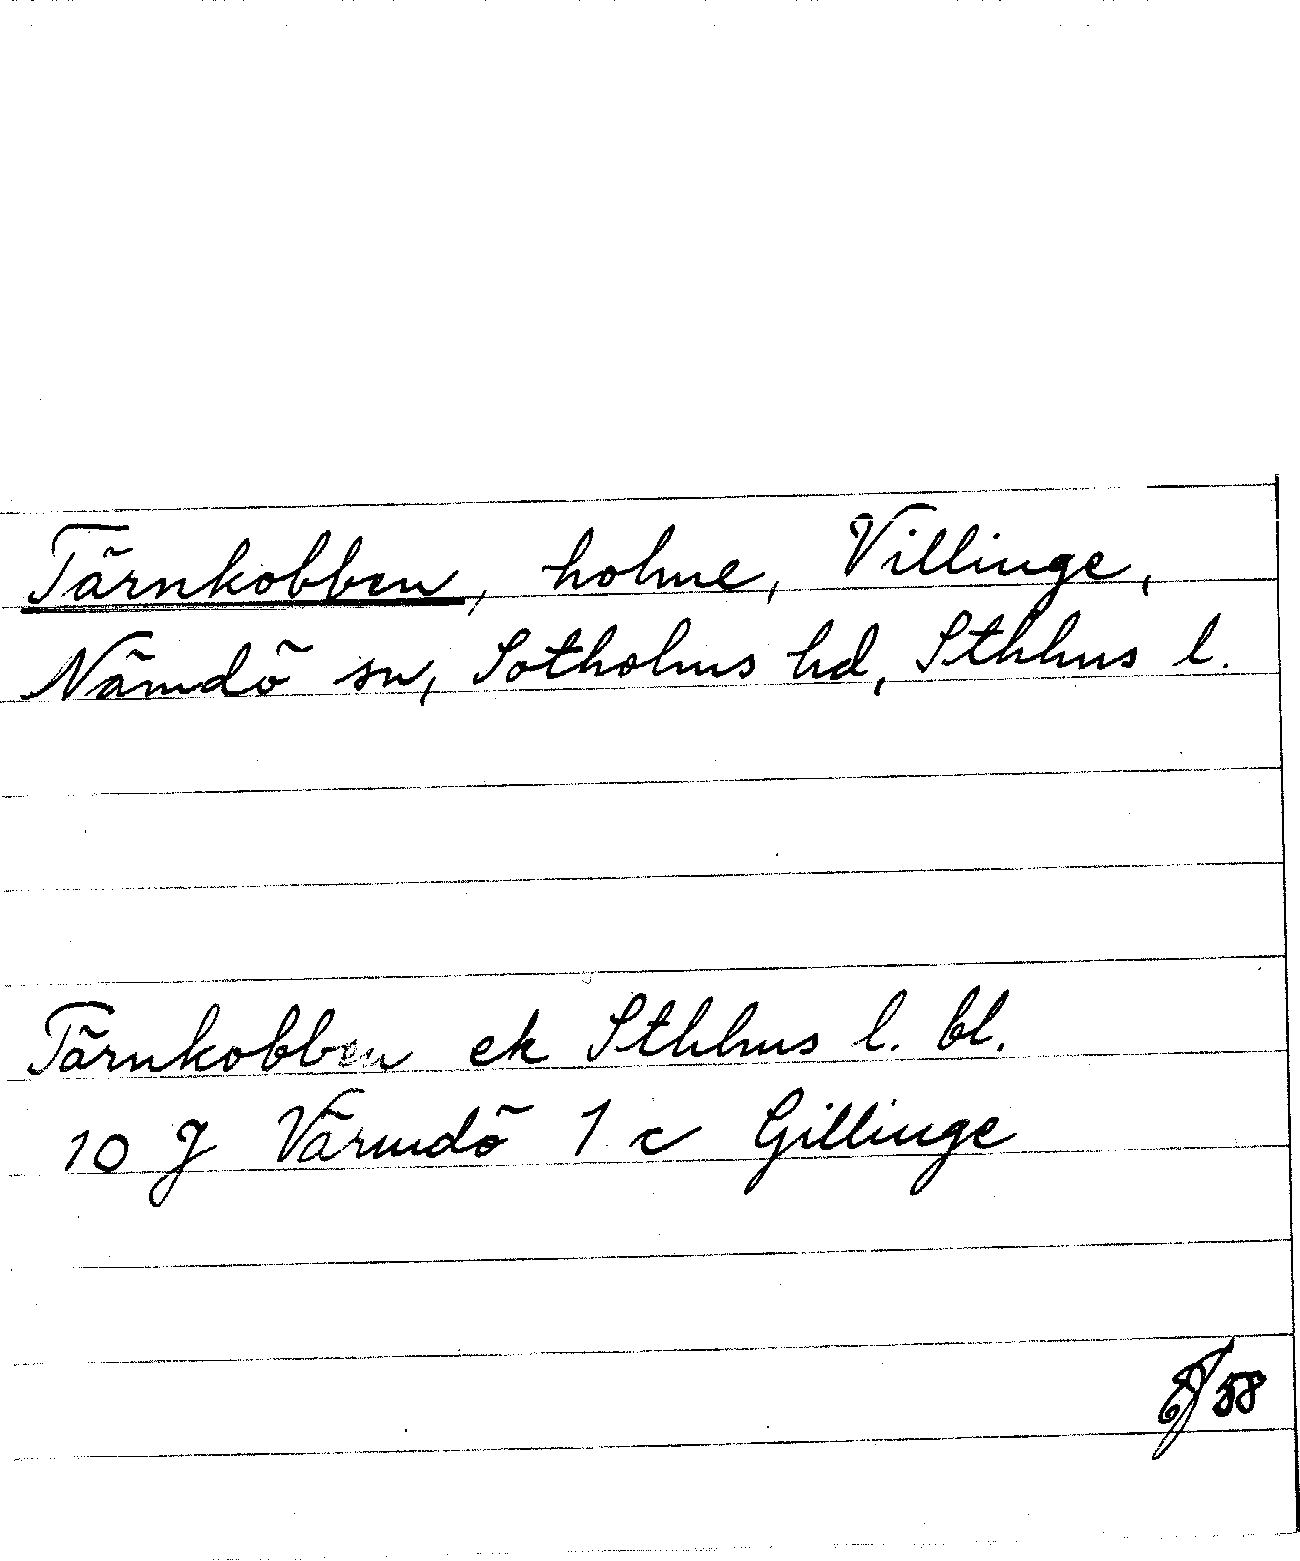 Tärnkobben, holme, Villinge,
Nämdö sn, Sotholms hd, Sthlms l.
Tärnkobben ek Sthlms l. bl.
10 J Värmdö 1 c Gillinge
58